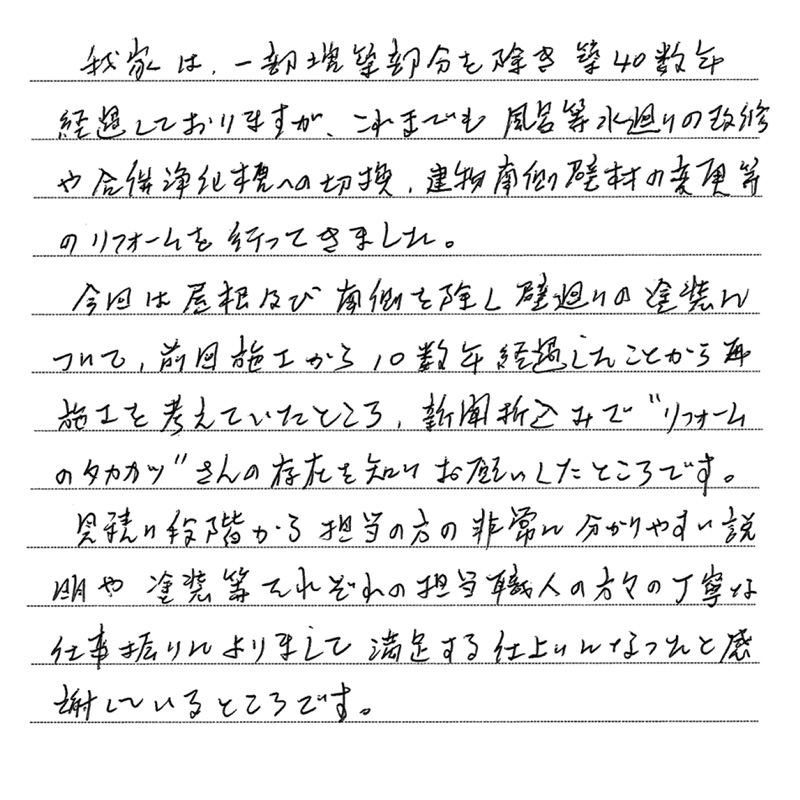 我家は、一部増築部分を除き築40数年
経過しておりますが、これまでも風呂等水廻りの改修
や合併浄化槽への切換、建物南側壁材の変更等
のリフォームを行ってきました。
今回は屋根及び南側を除し壁廻りの塗装に
ついて、前回施工から10数年経過したことから再
施工を考えていたところ、新聞折込みで"リフォーム
のタカカツ"さんの存在を知りお願いしたところです。
見積り段階から担当の方の非常に分かりやすい説
明や塗装等それぞれの担当職人の方々の丁寧な
仕事振りによりまして満足する仕上りになったと感
謝しているところです。